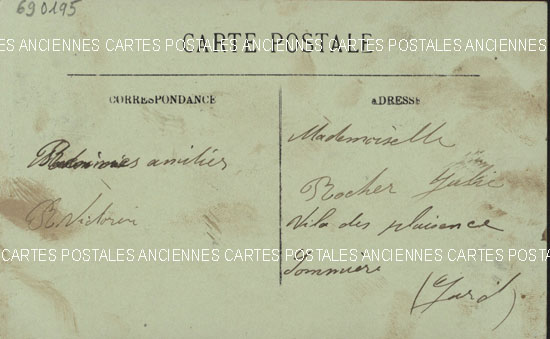 690195
CARTE POSTALE
ES ANCIENNES CARTES POSTALES ANCIENNES CARTES POSTALES ANCIENNES
CORRESPONDANCE
amitiés
R Victorin
ADRESSE
Mademoiselle
Rocher Julie
Vila des plaisence
Sommière
(Gard)
CARTES POSTALES ANCIENNES CARTES POSTALES ANCIENNES CARTES POST